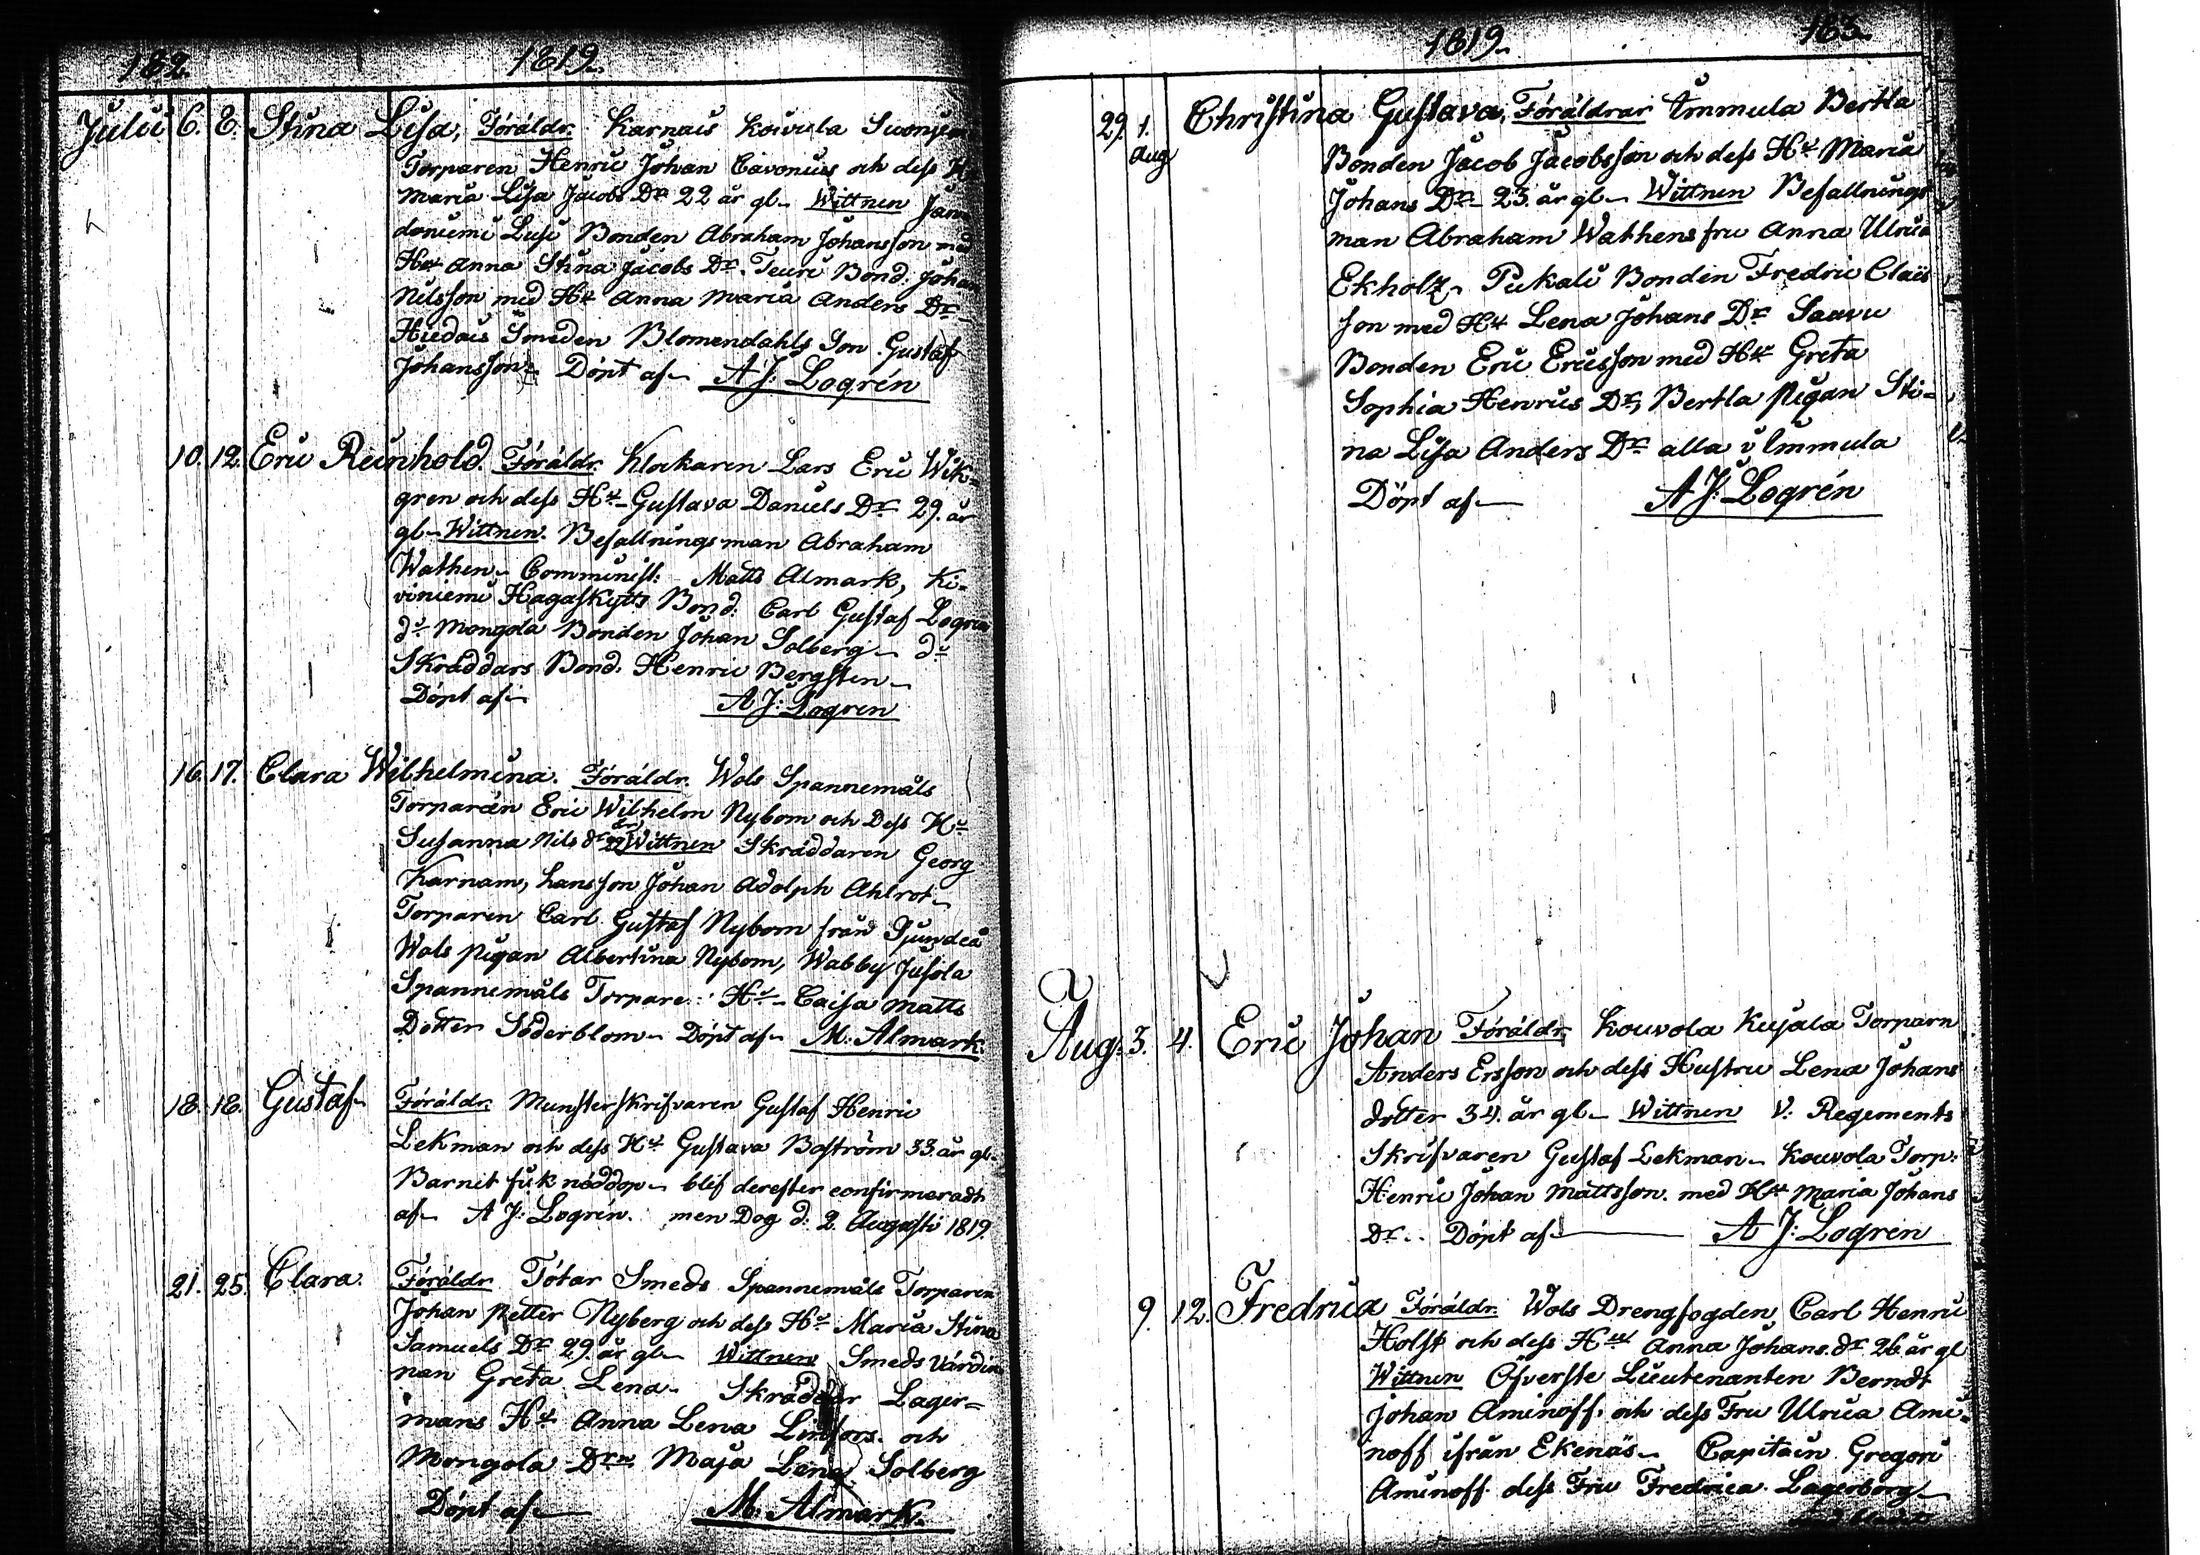 182.
1819.
Julii 6. 8. Stina Lisa, Föräldr. Karnais Koivula
Torparen Henric Johan Cavonius och dess
Maria Lisa Jacobs Dr 22 år gl. Wittnen
Bonden Abraham Johansson med
Hu Anna Stina Jacobs Dr. Teuri Bond. Johan
Nilsson med Hu Anna Maria Anders Dr
Hiedais Smeden Blomendahls Son Gustaf
Johansson Döpt af A J: Logrén
10. 12. Eric Reinhold. Föräldr. Klockaren Lars Eric Wik-
gren och dess Hu Gustava Daniels Dr 29. år
gl. Wittnen. Befallningsman Abraham
Wathen. Communist. Matts Almark, Ki-
viniemi Hagaskytts Bond. Carl Gustaf Logren
do Mongola Bonden Johan Solberg do
Skräddars Bond. Henric Bergsten
Döpt af A J: Logren
16. 17. Clara Wilhelmina. Föräldr. Wols Spannemåls
Torparen Eric Wilhelm Nybom och Dess Hu
Susanna Nils dr Wittnen Skräddaren Georg
Karnam, hans son Johan Adolph Ahlrot
Torparen Carl Gustaf Nybom från Sjundeå
Wols pigan Albertina Nybom, Wabby Jusola
Spannemåls Torpare Hu Caisa Matts
Dotter Söderblom Döpt af M. Almark.
18. 18. Gustaf Föräldr. Munsterskrifvaren Gustaf Henric
Lekman och dess Hu Gustava Boström 33 år gl.
Barnet fick nöddop blif derefter confirmeradt
af A J: Logrén. men Dog d: 2 Augusti 1819.
21. 25. Clara. Föräldr Tötar Smeds Spannemåls Torparen
Johan Petter Nyberg och dess Hu Maria Stina
Samuels Dr 29. år gl. Wittnen Smeds Värdin
nan Greta Lena. Skräddar Lager=
mans Hu Anna Lena Linfors. och
Mongola Drn Maja Lena Solberg
Döpt af M. Almark.
1819.
183.
29. 1. Christina Gustava, Föräldrar Immula Bertla
Aug Bonden Jacob Jacobsson och dess Hu Maria
Johans Dr 23. år gl. Wittnen Befallnings
man Abraham Wathens fru Anna Ulrica
Ekholz Pukali Bonden Fredric Claes
son med Hu Lena Johans Dr Saavu
Bonden Eric Ericsson med Hu Greta
Sophia Henrics Dr, Bertla pigan Sti=
na Lisa Anders Dr alla i Immula
Döpt af A J: Logrén
Aug. 3. 4. Eric Johan Föräldr. Kouvola Kujala Torparn
Anders Ersson och dess Hustru Lena Johans
dotter 34. år gl. Wittnen V. Regements
Skrifvaren Gustaf Lekman. Kouvola Torp.
Henric Johan Mattsson. med Hu Maria Johans
Dr. Döpt af A J: Logren
9. 12. Fredrica Föräldr. Wols Drengfogden Carl Henric
Holst och dess Hu Anna Johans dr 26 år gl
Wittnen Öfverste Lieutenanten Berndt
Johan Aminoff. och dess Fru Ulrica Ami=
noff ifrån Ekenäs. Capitain Gregori
Aminoff. dess Fru Fredrica Lagerborg